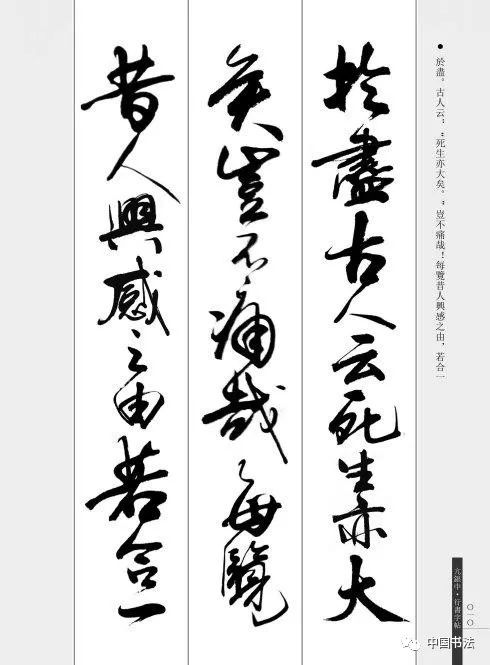 於盡。古人云：“死生亦大矣。”豈不痛哉！每覽昔人興感之由，若合一
於盡古人云死生亦大
矣豈不痛哉每覽
昔人興感之由若合一
行書字帖
〇一〇
中国书法